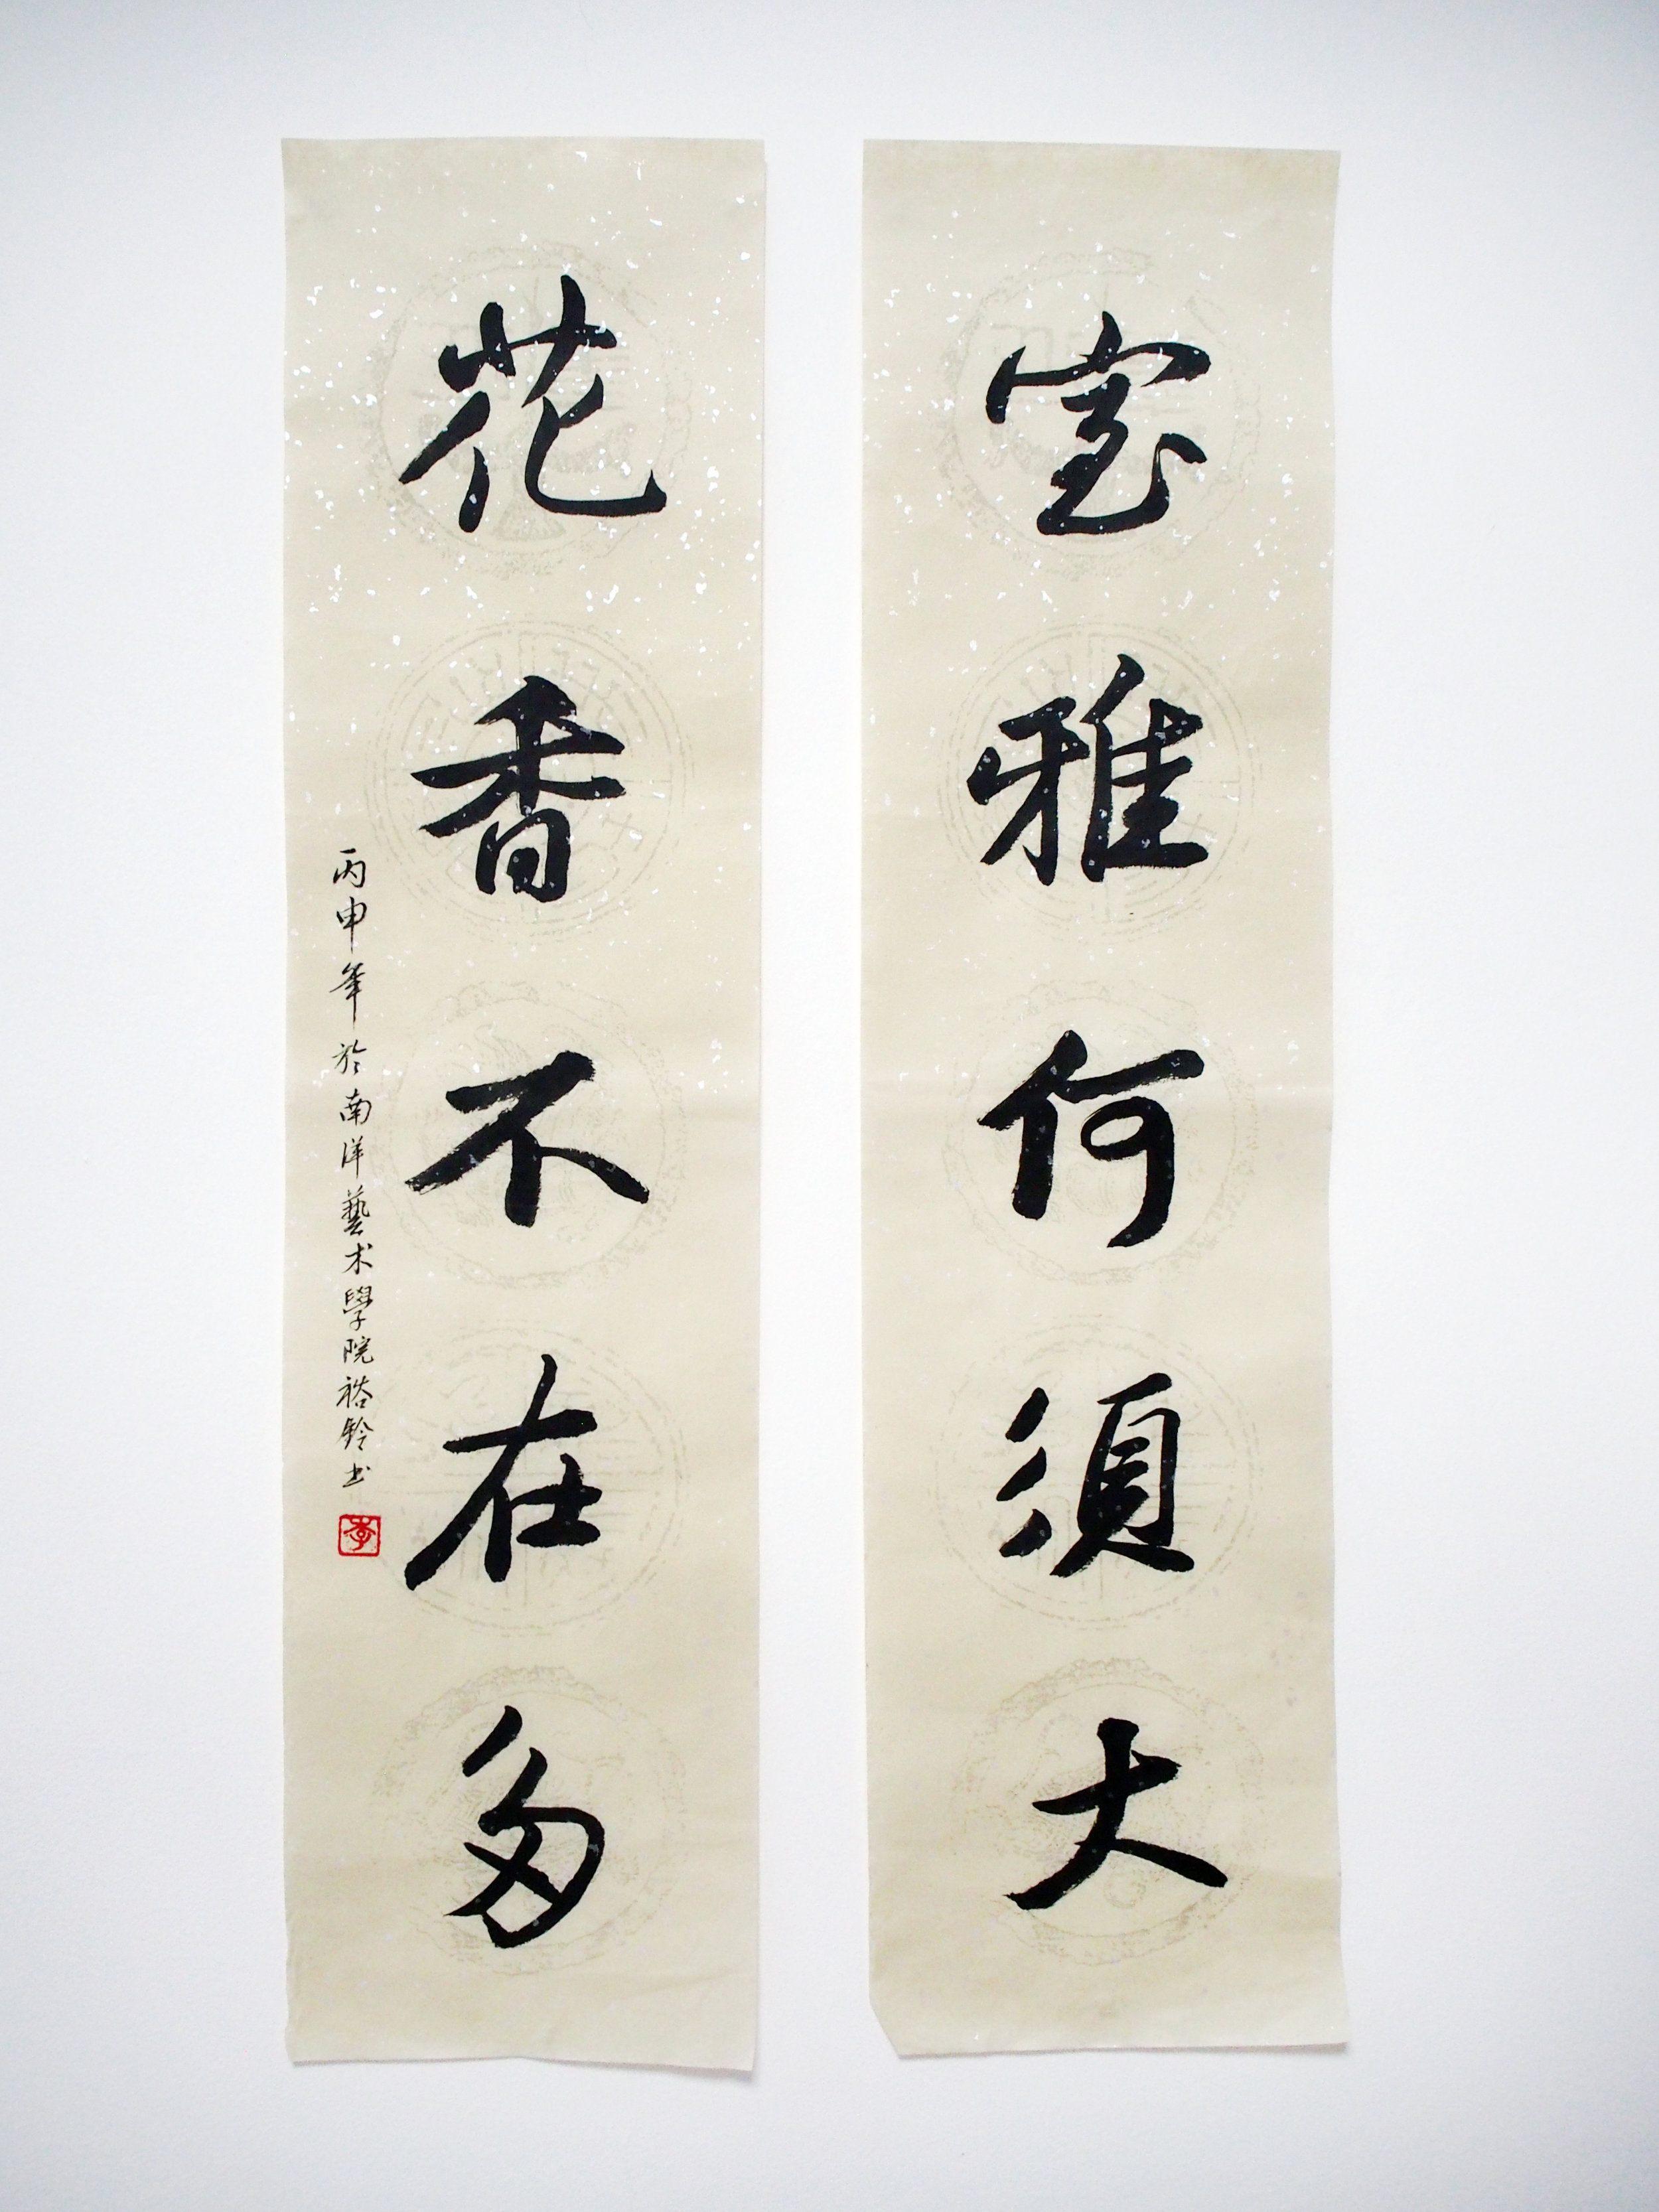 室雅何須大
花香不在多
丙申年於南洋藝术學院裕鈴书
李